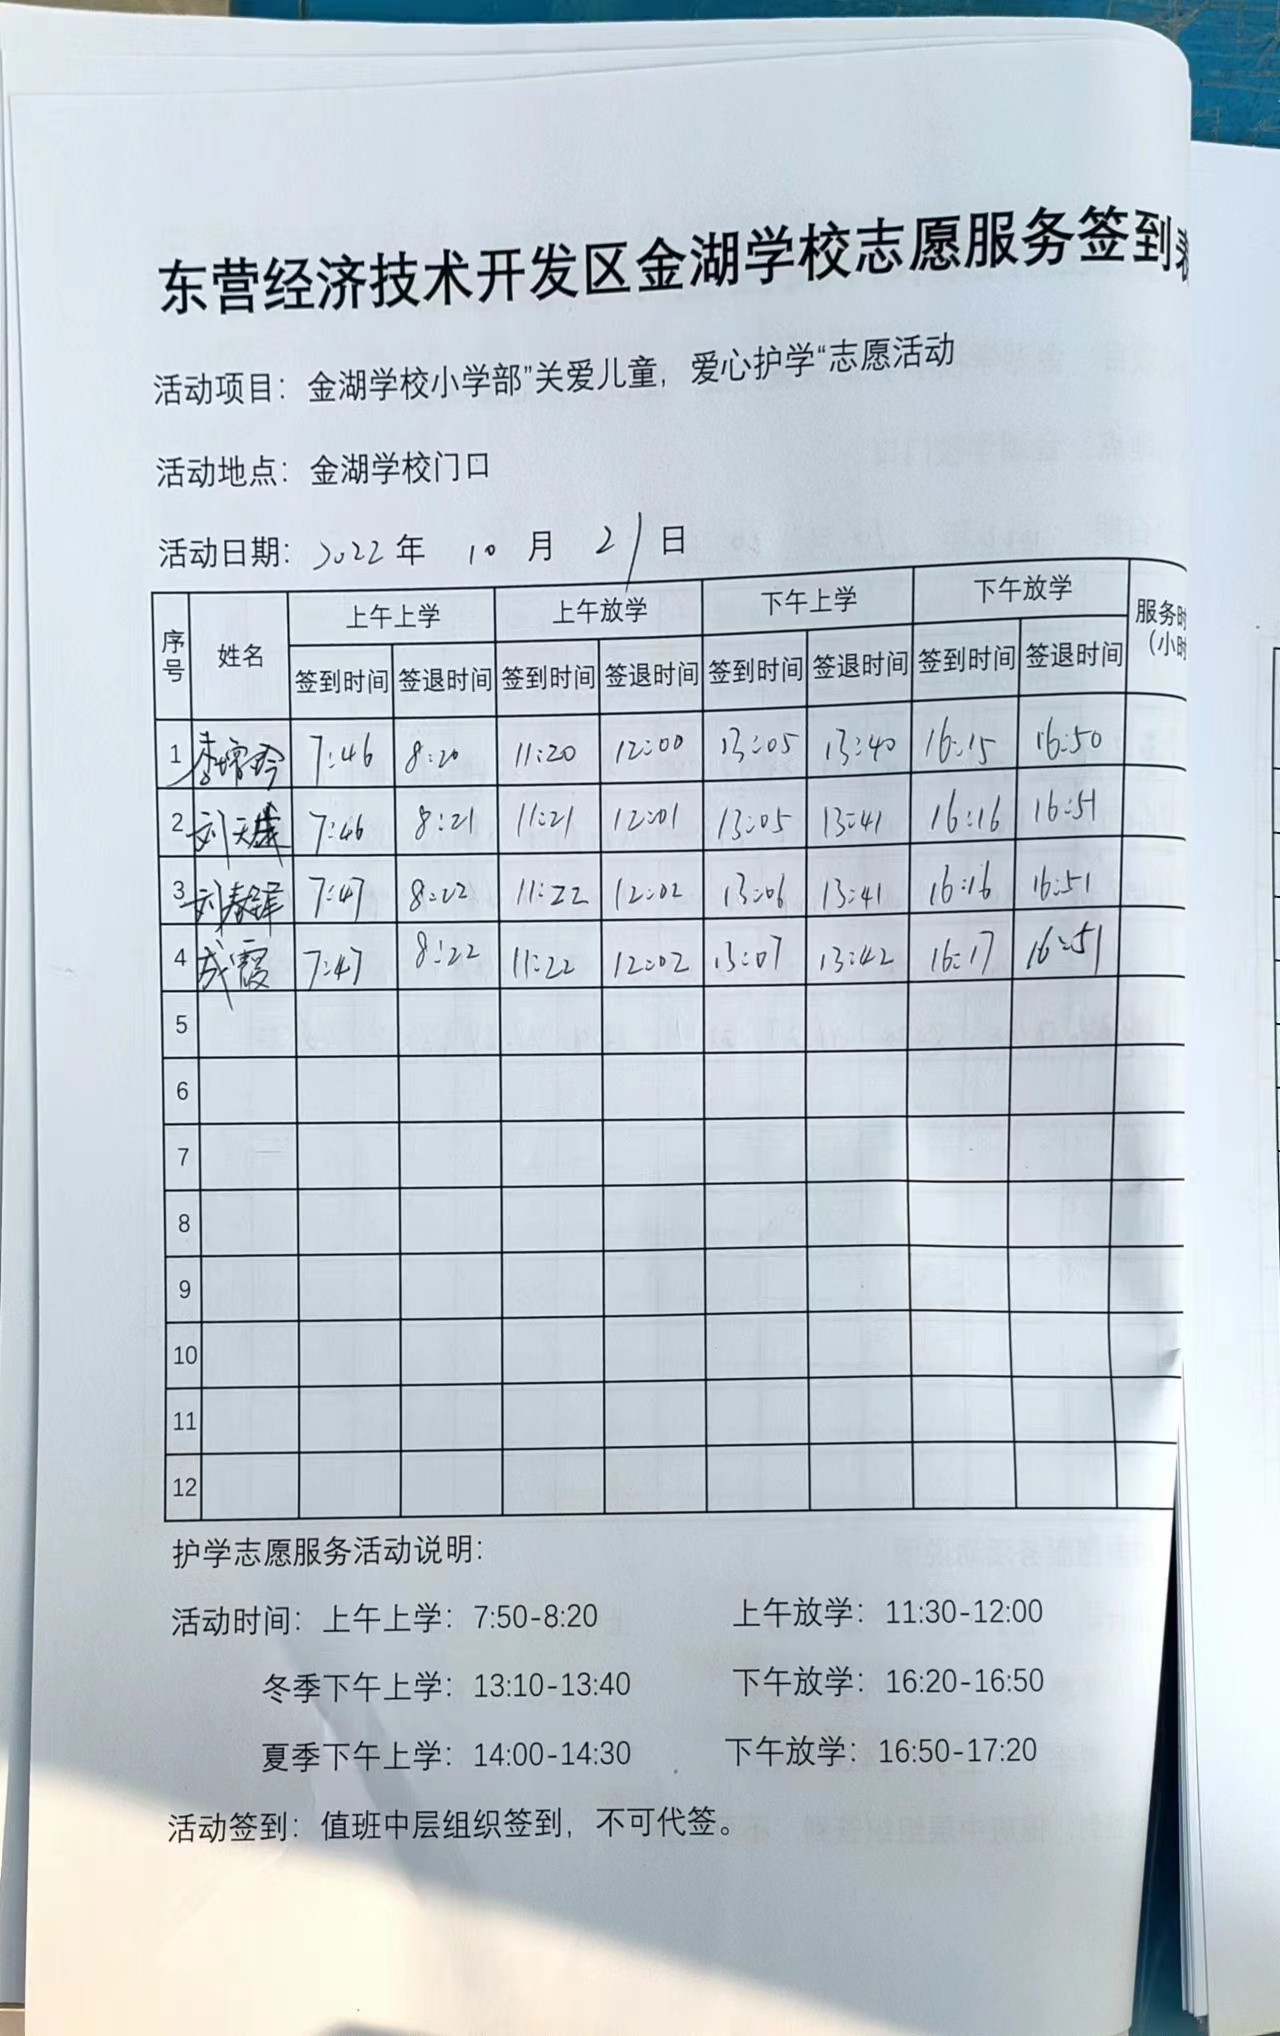 东营经济技术开发区金湖学校志愿服务签到表
活动项目：金湖学校小学部”关爱儿童，爱心护学“志愿活动
活动地点：金湖学校门口
活动日期：2022年 10 月 21 日
序号 姓名 上午上学 上午放学 下午上学 下午放学 服务时
(小时
签到时间 签退时间 签到时间 签退时间 签到时间 签退时间 签到时间 签退时间
1 7:46 8:20 11:20 12:00 13:05 13:40 16:15 16:50
2 刘天 7:46 8:21 11:21 12:01 13:05 13:41 16:16 16:51
3 刘春 7:47 8:22 11:22 12:02 13:06 13:41 16:16 16:51
4 成霞 7:47 8:22 11:22 12:02 13:07 13:42 16:17 16:51
5
6
7
8
9
10
11
12
护学志愿服务活动说明：
活动时间：上午上学：7:50-8:20 上午放学：11:30-12:00
冬季下午上学：13:10-13:40 下午放学：16:20-16:50
夏季下午上学：14:00-14:30 下午放学：16:50-17:20
活动签到：值班中层组织签到，不可代签。